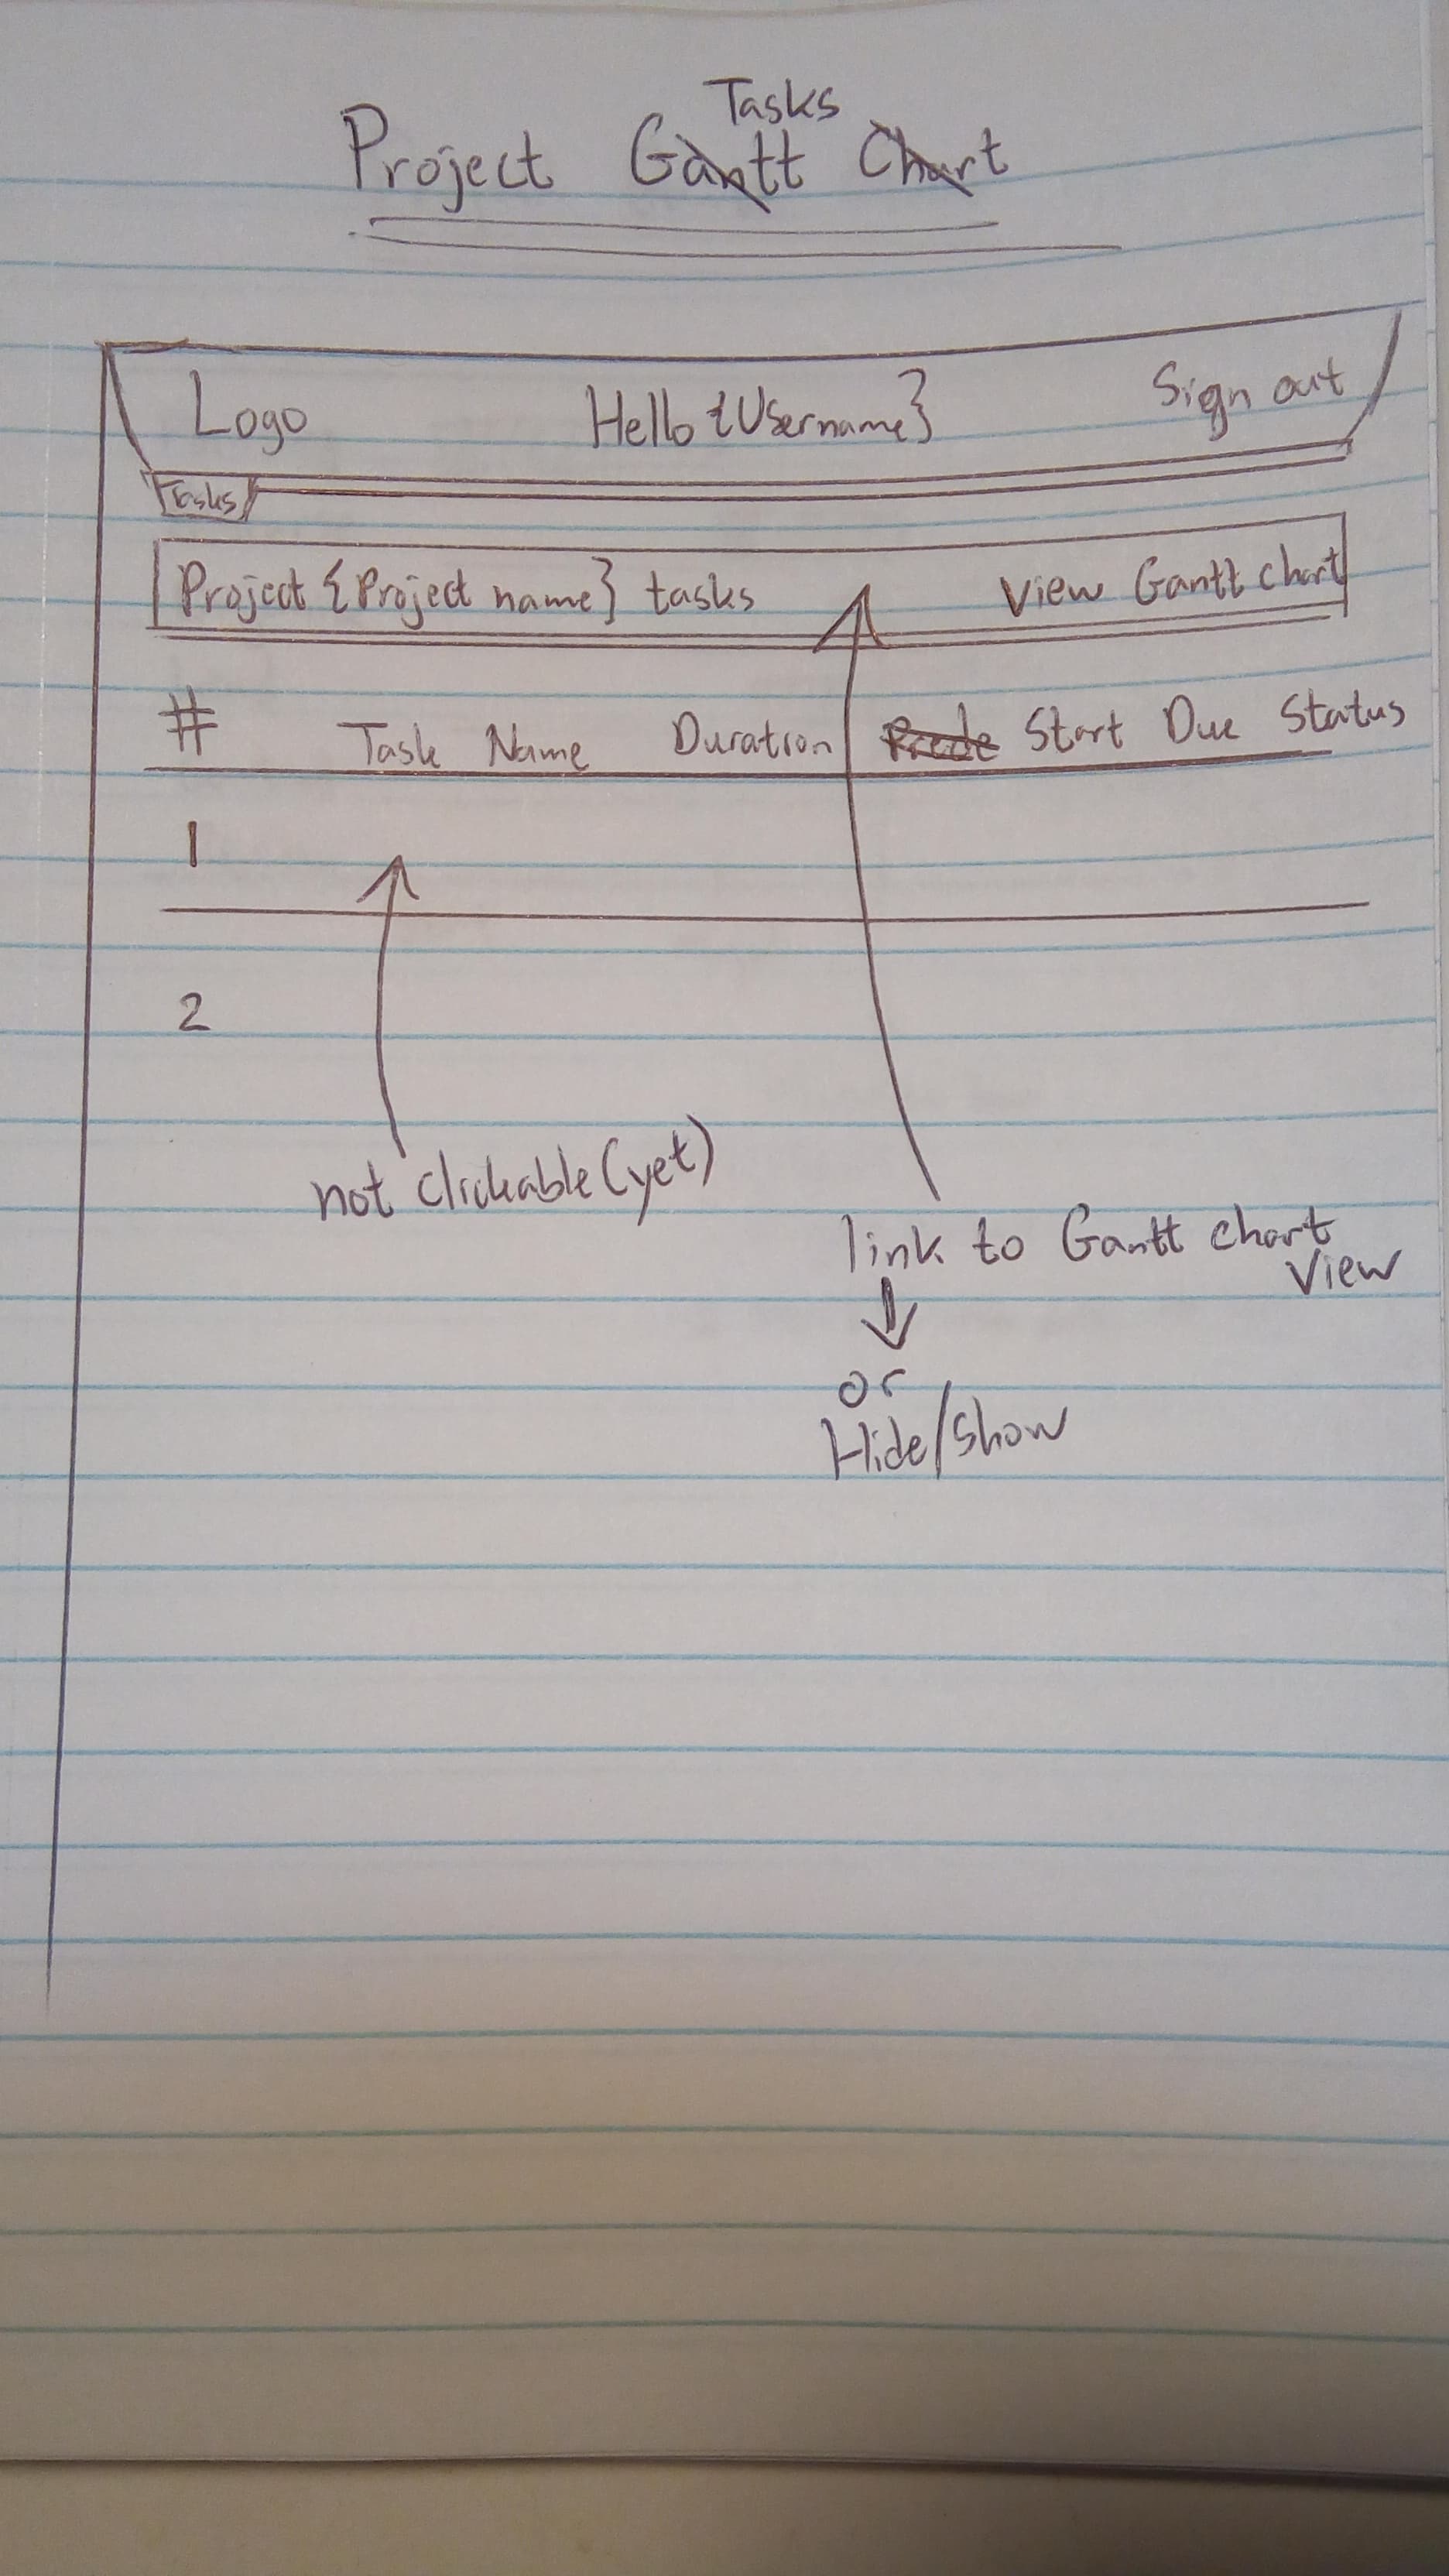 Tasks
Project Gantt Chart
Logo Hello {Username} Sign out
Tasks
Project {Project name} tasks View Gantt chart
# Task Name Duration Prede Start Due Status
1
2
not clickable (yet)
link to Gantt chart
View
or
Hide/Show